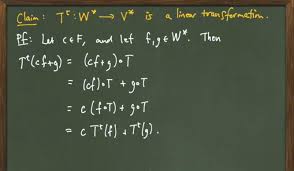 Claim: Tᵗ: W* → V* is a linear transformation.
Pf: Let c∈F, and let f,g∈W*. Then
Tᵗ(cf+g) = (cf+g)∘T
= (cf)∘T + g∘T
= c (f∘T) + g∘T
= c Tᵗ(f) + Tᵗ(g).